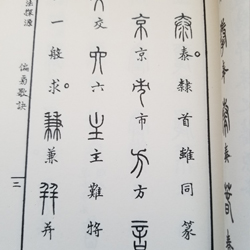 泰泰。隸首雖同篆
京京市市方方言
交六六主主難將
一般求。兼兼并并
法探源
偏旁歌訣
三